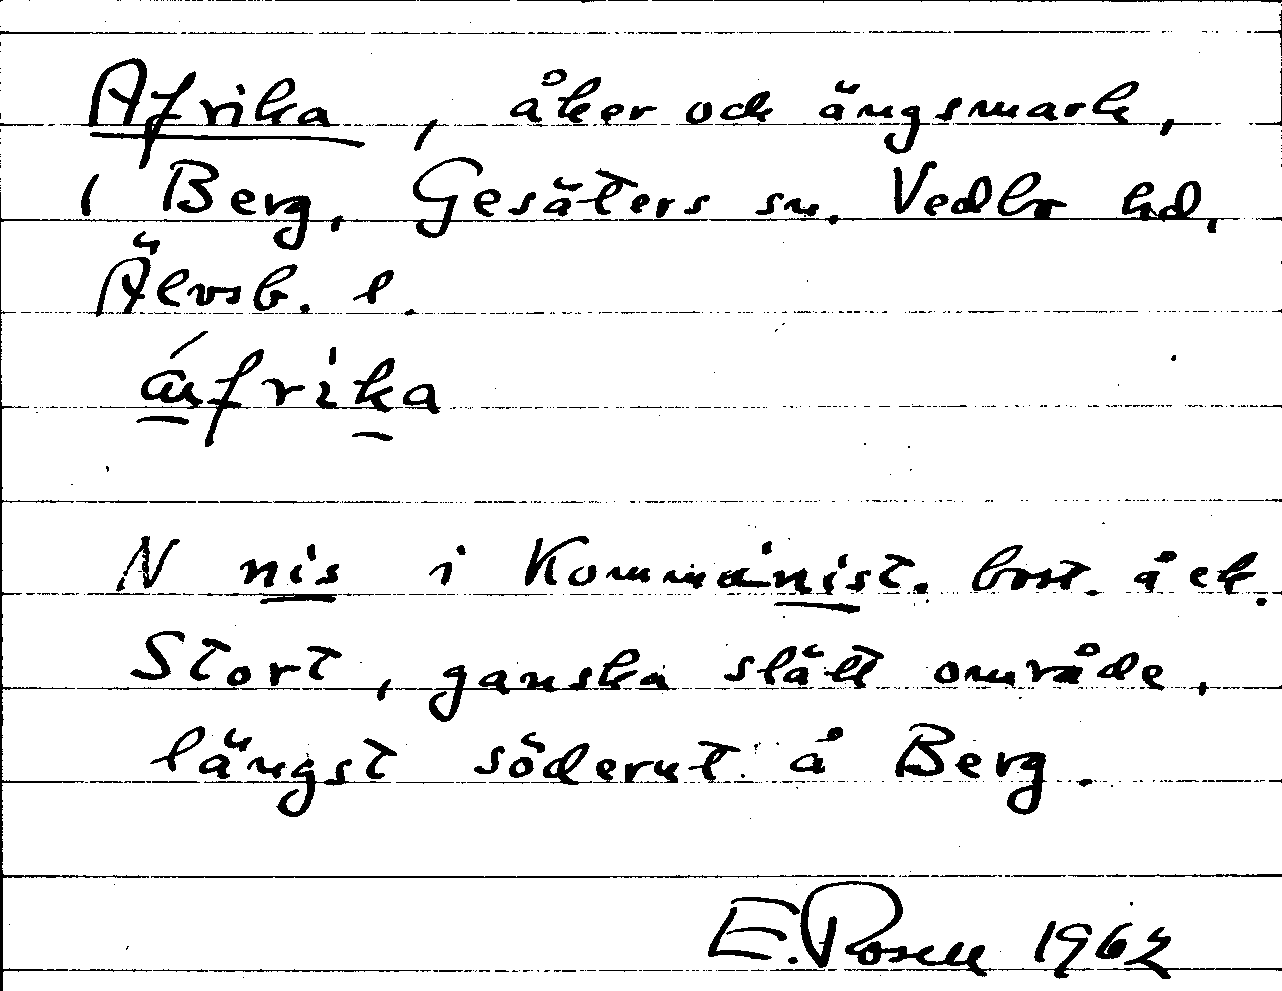 Afrika, åker och ängsmark,
i Berg, Gesäters sn. Vedbo hd,
Älvsb. l.
áfrika
N nis i Kommunist. bost. å ek.
Stort, ganska slätt område,
längst söderut å Berg.
E. Rosell 1962